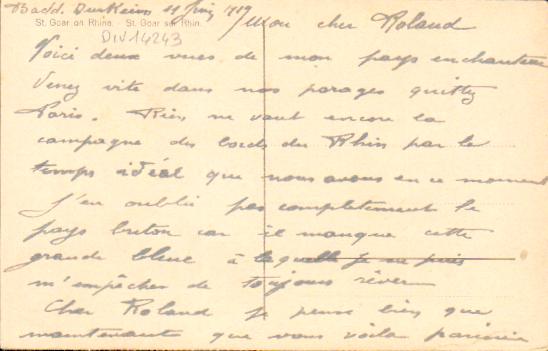 Badd Durkeim 11 Juin 1919
St. Goar on Rhine. - St. Goar sur Rhin.
DIV14243
Mon cher Roland
Voici deux vues de mon pays enchanteur
Venez vite dans nos parages quittez
Paris. Rien ne vaut encore la
campagne des bords du Rhin par le
temps idéal que nous avons en ce moment
J'en oublie pas complètement le
pays breton car il manque cette
grande bleue à laquelle je ne puis
m'empêcher de toujours rêver
Cher Roland je pense bien que
maintenant que vous voilà parisien